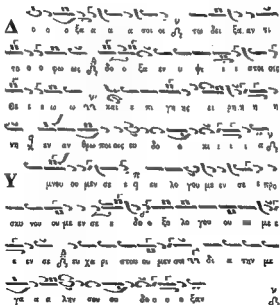 Δ ο ο ο ξα α α α σοι οι τω δει ξα αν τι
το ο ο φω ως δο ο ξα εν υ ψι ι ι στοις οις
Θε ε ω ω και ε πι γης ει ρη η η
νη εν αν θρω ποι οις ευ δο ο κι ι ι α
Υ μνου ου μεν σε ε ευ λο γου με εν σε ε προ
σκυ νου ου με εν σε ε δο ο ξο λο γου ου με
ε εν σε ευ χα ρι στου ου μεν σοι δι α την με
γα α α λην σου ου δο ο ο ξαν